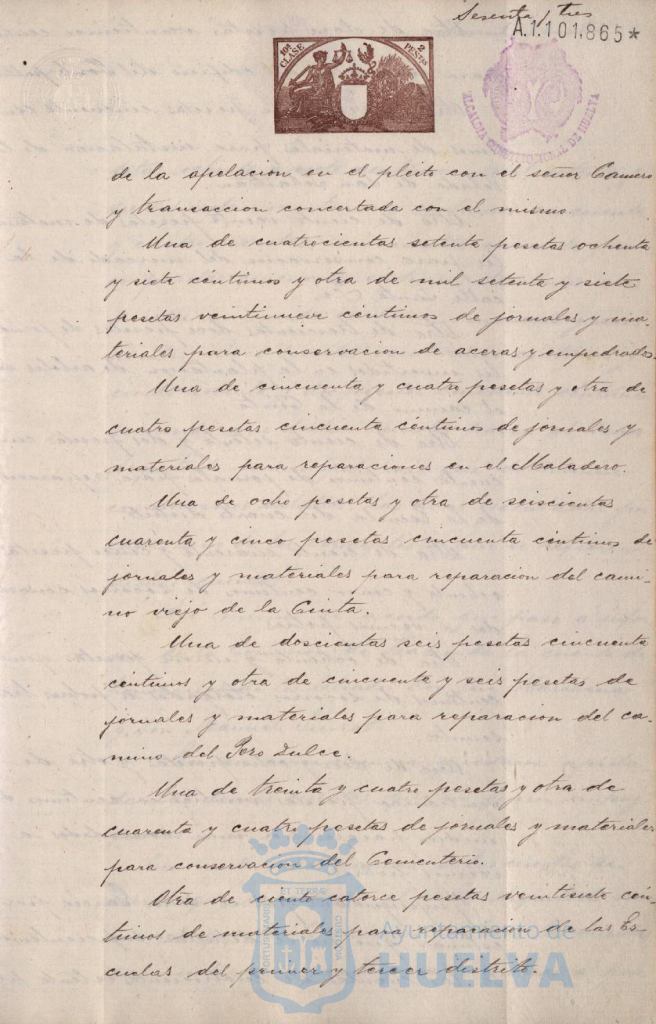 Sesenta y tres
A.1.101.865*
10ª CLASE
2 PESTAS
ALCALDIA CONSTITUCIONAL DE HUELVA
de la apelacion en el pleito con el señor
y transaccion concertada con el mismo.
Una de cuatrocientas setenta pesetas ochenta
y siete céntimos y otra de mil setenta y siete
pesetas veintinueve céntimos de jornales y ma-
teriales para conservacion de aceras y empedrados.
Una de cincuenta y cuatro pesetas y otra de
cuatro pesetas cincuenta céntimos de jornales y
materiales para reparaciones en el Matadero.
Una de ocho pesetas y otra de seiscientas
cuarenta y cinco pesetas cincuenta céntimos de
jornales y materiales para reparacion del cami-
no viejo de la Cinta.
Una de doscientas seis pesetas cincuenta
céntimos y otra de cincuenta y seis pesetas de
jornales y materiales para reparacion del ca-
mino del Pozo Dulce.
Una de treinta y cuatro pesetas y otra de
cuarenta y cuatro pesetas de jornales y materiales
para conservacion del Cementerio.
Otra de ciento catorce pesetas veintisiete cén-
timos de materiales para reparacion de las Es-
cuelas del primer y tercer distrito.
PORTUS MARIS ET TERRAE CUSTODIA
Ayuntamiento de
HUELVA